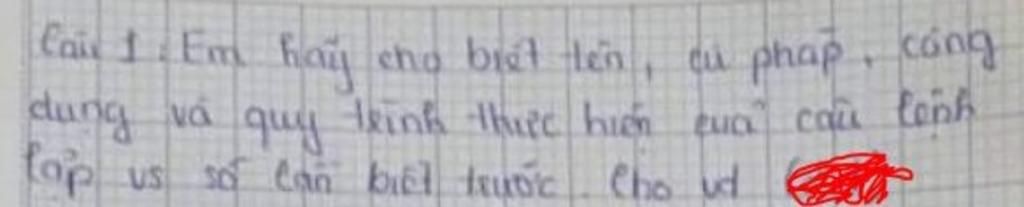 Câu 1. Em hãy cho biết tên, cú pháp, công
dụng và quy trình thực hiện của câu lệnh
lặp vs số lần biết trước. Cho vd